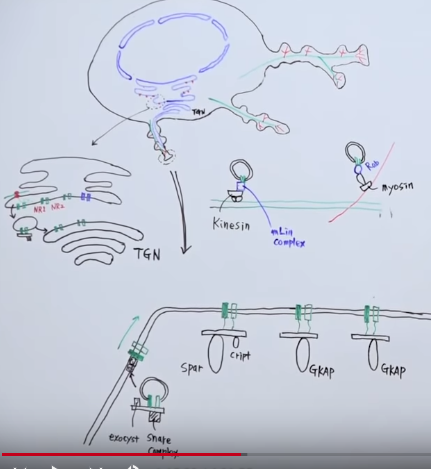 TGN
NR1 NR2
TGN
Kinesin
mLin
complex
Rab
myosin
Spar
Cript
GKAP
GKAP
exocyst Snare
Complex